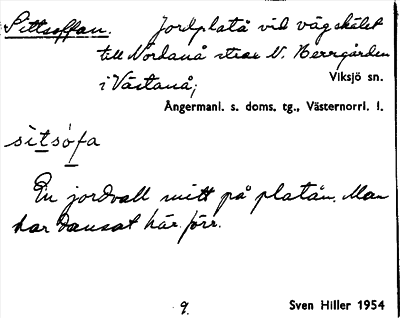 Sittsoffan. Jordplatå vid vägskälet
till Nordanå strax N. Herrgården
i Västanå; Viksjö sn.
Ångermanl. s. doms. tg., Västernorrl. l.
sitsófa
En jordvall mitt på platån. Man
har dansat här förr.
9. Sven Hiller 1954